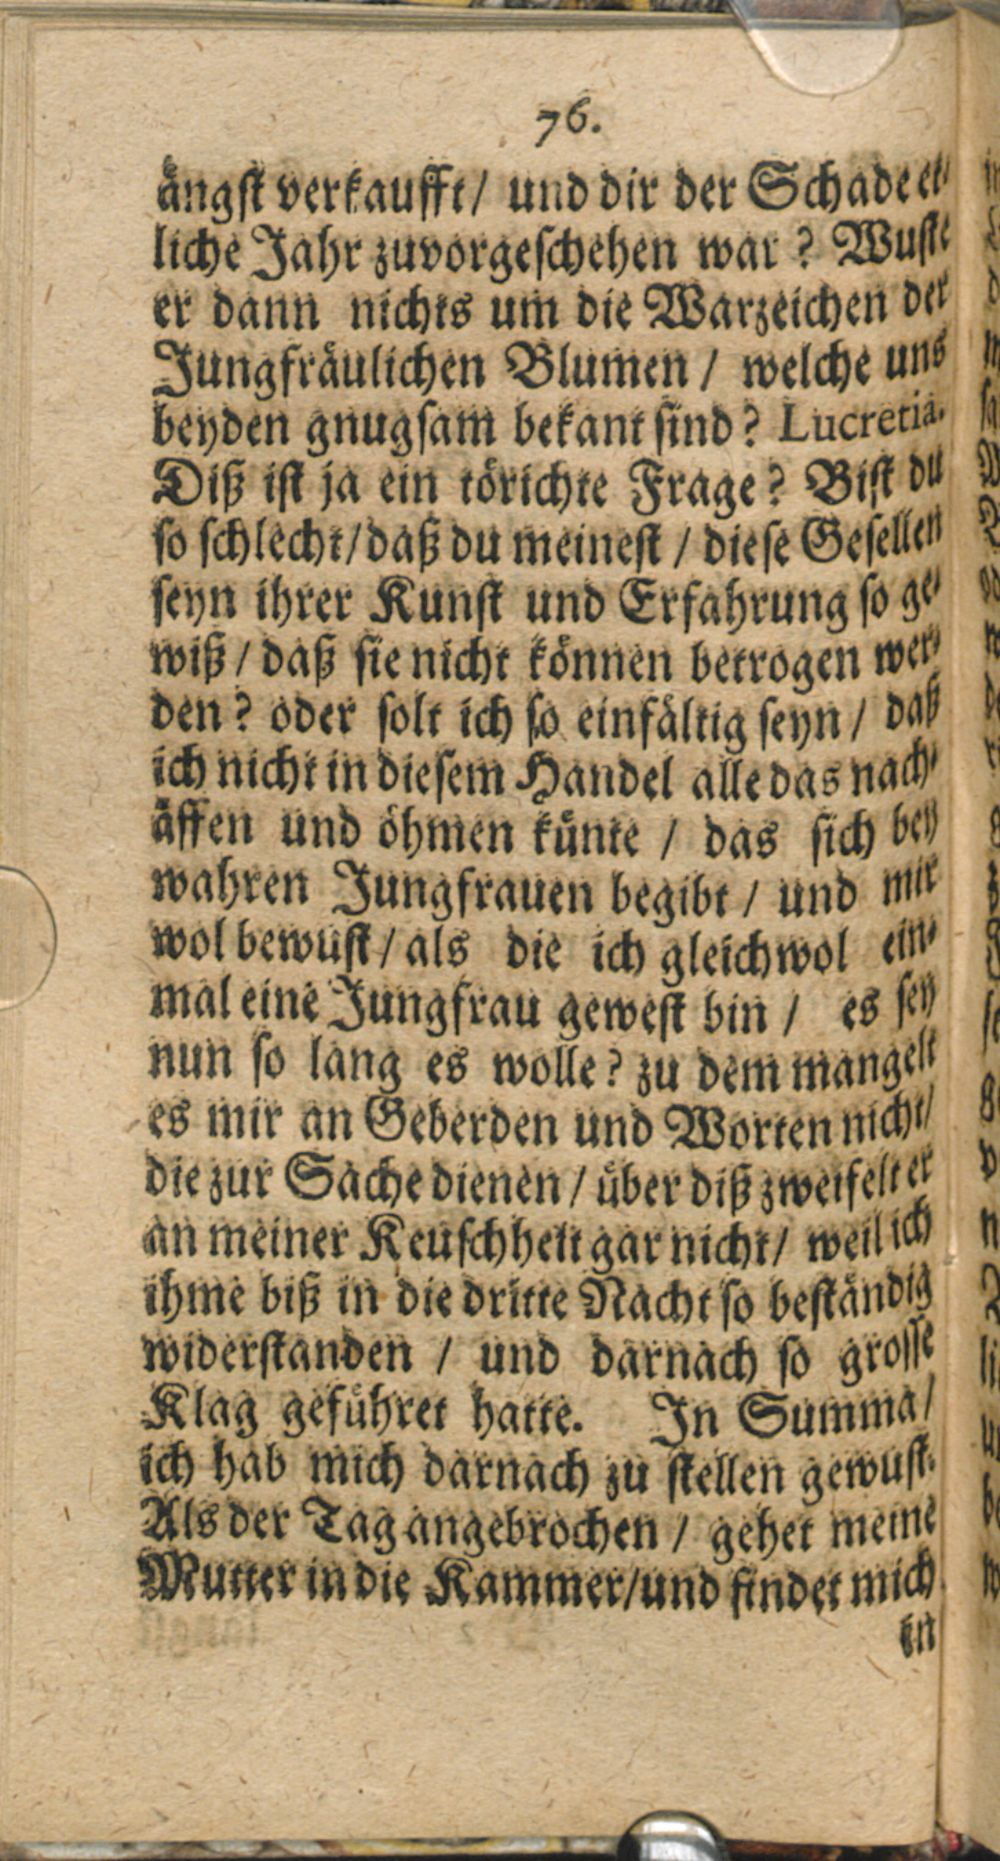 76.
ängst verkaufft / und dir der Schade et-
liche Jahr zuvorgeschehen war? Wuste
er dann nichts um die Warzeichen der
Jungfräulichen Blumen / welche uns
beyden gnugsam bekant sind? Lucretia.
Diß ist ja ein törichte Frage? Bist du
so schlecht / daß du meinest / diese Gesellen
seyn ihrer Kunst und Erfahrung so ge-
wiß / daß sie nicht können betrogen wer-
den? oder solt ich so einfältig seyn / daß
ich nicht in diesem Handel alle das nach-
äffen und öhmen künte / das sich bey
wahren Jungfrauen begibt / und mir
wol bewust / als die ich gleichwol ein-
mal eine Jungfrau gewest bin / es sey
nun so lang es wolle? zu dem mangelt
es mir an Geberden und Worten nicht /
die zur Sache dienen / über diß zweifelt er
an meiner Keuschheit gar nicht / weil ich
ihme biß in die dritte Nacht so beständig
widerstanden / und darnach so grosse
Klag geführet hatte. In Summa /
ich hab mich darnach zu stellen gewust.
Als der Tag angebrochen / gehet meine
Mutter in die Kammer / und findet mich
in